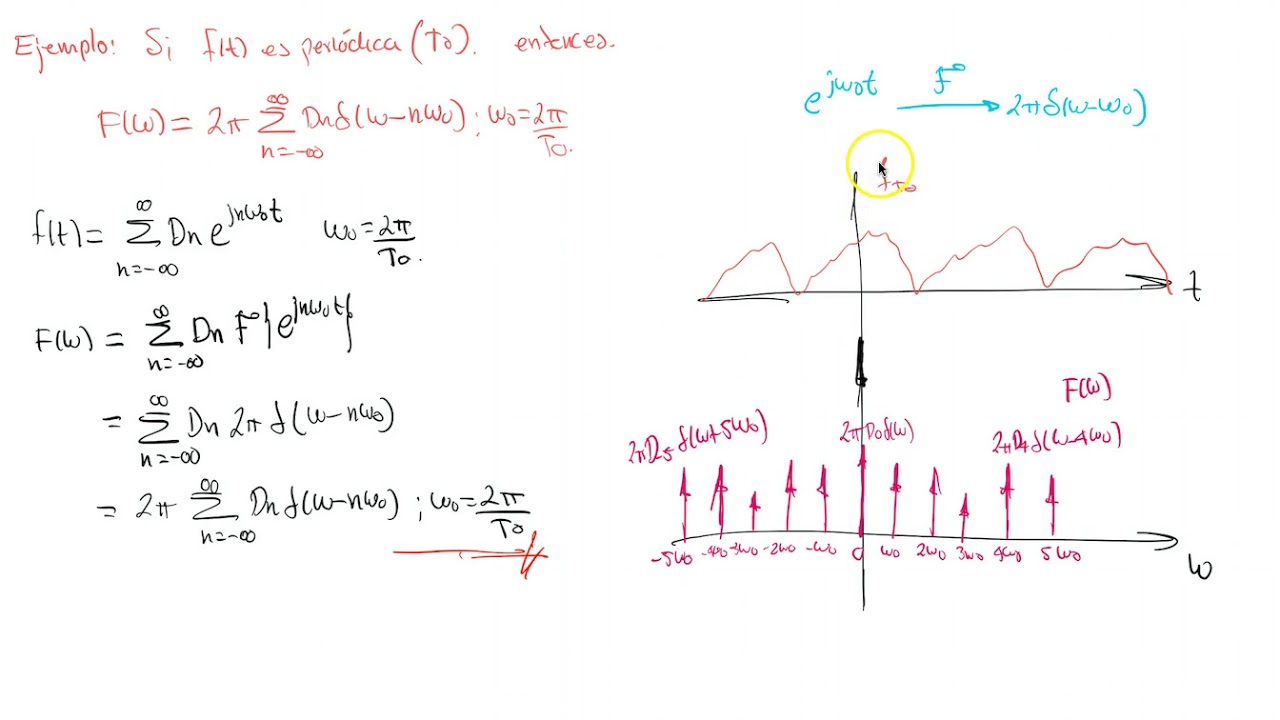 Ejemplo: Si f(t) es periódica (T0). entonces.
F(ω) = 2π ∑_{n=-∞}^{∞} Dn δ(ω-nω0) ; ω0 = 2π/T0.
f(t) = ∑_{n=-∞}^{∞} Dn e^{jnω0t} ω0 = 2π/T0.
F(ω) = ∑_{n=-∞}^{∞} Dn F{e^{jnω0t}}
= ∑_{n=-∞}^{∞} Dn 2π δ(ω-nω0)
= 2π ∑_{n=-∞}^{∞} Dn δ(ω-nω0) ; ω0 = 2π/T0
e^{jω0t} F → 2πδ(ω-ω0)
f_{T0}
t
F(ω)
2πD-5 δ(ω+5ω0) 2πD0δ(ω) 2πD4δ(ω-4ω0)
-5ω0 -4ω0 -3ω0 -2ω0 -ω0 0 ω0 2ω0 3ω0 4ω0 5ω0
ω